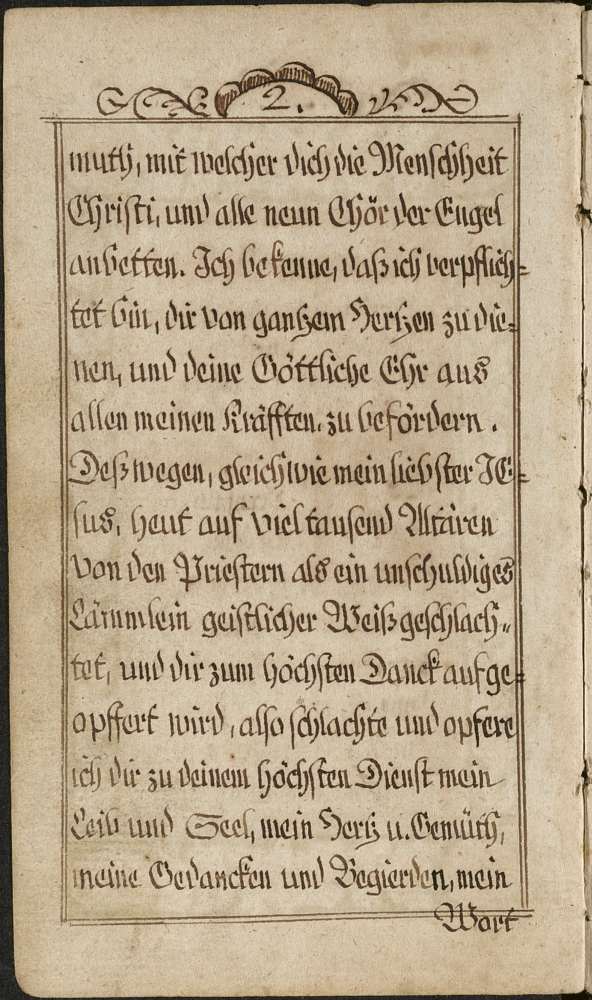 2.
muth, mit welcher dich die Menschheit
Christi, und alle neun Chör der Engel
anbetten. Ich bekenne, daß ich verpflich=
tet bin, dir von gantzem Hertzen zu die=
nen, und deine Göttliche Ehr aus
allen meinen Kräfften, zu befördern.
Deßwegen, gleichwie mein liebster JE=
sus, heut auf viel tausend Altären
von den Priestern als ein unschuldiges
Lämmlein geistlicher Weiß geschlach=
tet, und dir zum höchsten Danck aufge=
opffert wird, also schlachte und opfere
ich dir zu deinem höchsten Dienst mein
Leib und Seel, mein Hertz u. Gemüth,
meine Gedancken und Begierden, mein
Wort